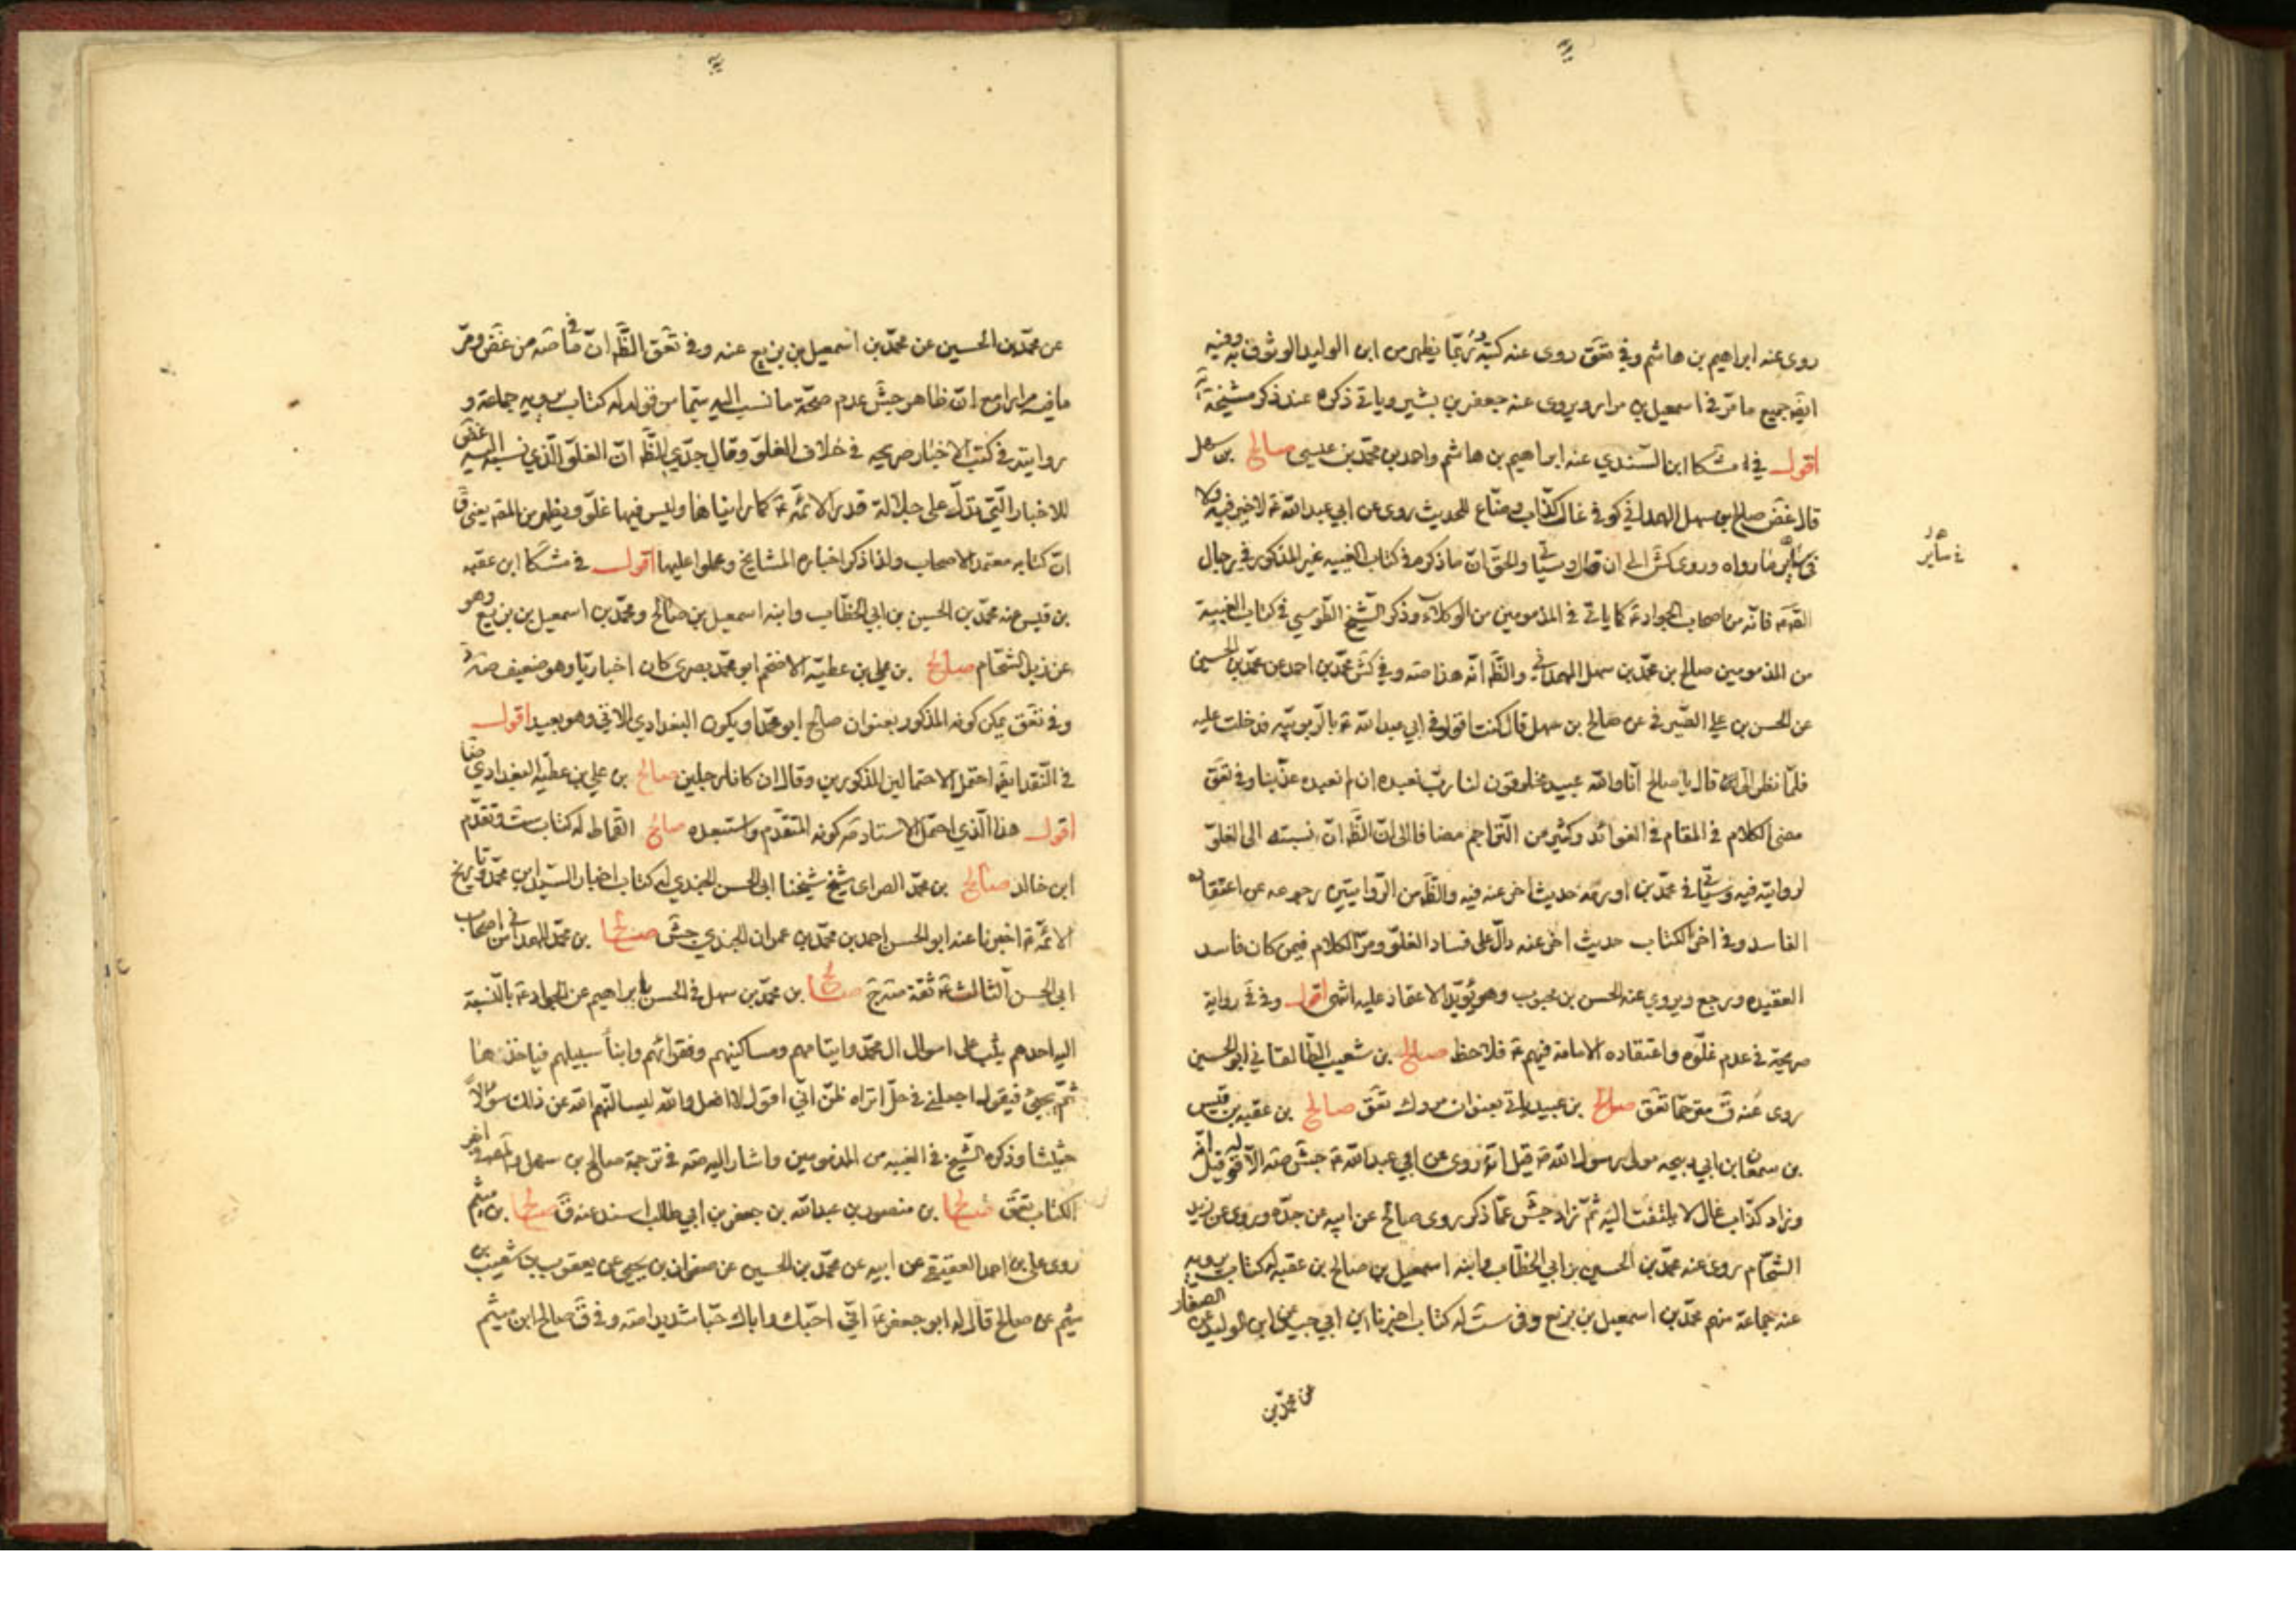 روى عنه ابراهيم بن هاشم وفي تعق روى عنه كتبه يظهر من ابن الوليد الوثوق به وفيه
ايض جميع ما مر في اسمعيل بن مرار ويروى عنه جعفر بن بشير وياتي ذكره عند ذكر مشيخة
اقول في مشكا ابن السندي عنه ابراهيم بن هاشم واحمد بن محمد بن عيسى صالح بن سهل
قال غض صالح بن سهل الهمداني كوفي غال كذاب وضاع للحديث روى عن ابي عبد الله ع لا خير فيه ولا
في سائر ما رواه وروى كش الى ان قال وسياتي والحق ان ما ذكره في كتاب الغيبة غير المذكور في رجال
فانه من اصحاب الجواد ع كما ياتي في المذمومين من الوكلاء وذكر الشيخ الطوسي في كتاب الغيبة
من المذمومين صالح بن محمد بن سهل الهمداني والظ انه هذا صه وفي كش محمد بن احمد عن محمد بن الحسين
عن الحسن بن علي الصيرفي عن صالح بن سهل قال كنت اقول في ابي عبد الله ع بالربوبيه فدخلت عليه
فلما نظر الى قال يا صالح انا والله عبيد مخلوقون لنا رب نعبده ان لم نعبده عذبنا وفي تعق
مضى الكلام في المقام في الفوائد وكثير من التراجم مضافا الى ان الظ ان نسبته الى الغلو
لروايته فيه وسياتي في محمد بن اورمه حديث اخر عنه فيه والظ من الروايتين رجوعه عن اعتقاده
الفاسد وفي اخر الكتاب حديث اخر عنه دال على فساد الغلو ومر الكلام فيمن كان فاسد
العقيده ورجع ويروي عنه الحسن بن محبوب وهو يؤيد الاعتماد عليه انتهى اقول وفي في رواية
صريحة في عدم غلوه واعتقاده الامامة فيهم ع فلاحظ صالح بن شعيب الطالقاني ابو الحسين
روى عنه ق مترحما تعق صالح بن عبيد ياتي بعنوان مروك تعق صالح بن عقبه بن قيس
بن سمعان ابن ابي ربيحه مولى رسول الله ص قيل انه روى عن ابي عبد الله ع جش صه الا قوله قيل انه
وزاد كذاب غال لا يلتفت اليه ثم زاد جش عما ذكر روى صالح عن ابيه عن جده وروى عن زيد
الشحام روى عنه محمد بن الحسين بن ابي الخطاب وابنه اسمعيل بن صالح بن عقبه له كتاب يرويه
عنه جماعة منهم محمد بن اسمعيل بن بزيع وفي ست له كتاب اخبرنا ابن ابي جيد عن ابن الوليد عن الصفار
عن محمد بن
في سائر
عن محمد بن الحسين عن محمد بن اسمعيل بن بزيع عنه وفي تعق الظ ان ما في صه من غض ومر
ما فيه مرارا مع ان ظاهر جش عدم صحة ما نسب اليه سيما من قوله له كتاب يرويه جماعة و
روايته في كتب الاخبار صريحه في خلاف الغلو وقال جدي الظ ان الغلو الذي نسبه اليه غض
للاخبار التي تدل على جلالة قدر الائمة ع كما رايناها وليس فيها غلو ويظهر من المقه يعنى ق
ان كتابه معتمد الاصحاب ولذا ذكر اخباره المشايخ وعملوا عليها اقول في مشكا ابن عقبه
بن قيس عنه محمد بن الحسين بن ابي الخطاب وابنه اسمعيل بن صالح ومحمد بن اسمعيل بن بزيع وهو
عن زيد الشحام صالح بن علي بن عطيه الاضخم ابو محمد بصرى كان اخباريا وهو ضعيف صه
وفي تعق يمكن كونه المذكور بعنوان صالح ابو محمد ويكون البغدادي الاتي وهو بعيد اقول
في النقد ايض احتمل الاحتمالين المذكورين وقال ان كانا رجلين صالح بن علي بن عطيه البغدادي ضا
اقول هذا الذي احتمل الاستاد كونه المتقدم واستبعده صالح القماط له كتاب ست وتقدم
ابن خالد صالح بن محمد الصراى شيخ شيخنا ابي الحسن الجندي له كتاب اخبار السيد ابن محمد وتاريخ
الائمة ع اخبرنا عنه ابو الحسن احمد بن محمد بن عمران الجندي جش صالح بن محمد الهمداني من اصحاب
ابي الحسن الثالث ع ثقة صه دي صالح بن محمد بن سهل في الحسن بابراهيم عن الجواد ع بالنسبة
اليه احدهم يثب على اموال ال محمد وايتامهم ومساكينهم وفقرائهم وابناء سبيلهم فياخذها
ثم يجيئ فيقول اجعلني في حل اتراه ظن اني اقول لا افعل والله ليسالنهم الله عن ذلك سؤالا
حثيثا وذكره الشيخ في الغيبه من المذمومين واشار اليه صه في ترجمة صالح بن سهل وفي اخر
الكتاب تعق صالح بن منصور بن عبد الله بن جعفر بن ابي طالب اسند عنه ق صالح بن ميثم
روى علي بن احمد العقيقي عن ابيه عن محمد بن الحسين عن صفوان بن يحيى عن يعقوب بن شعيب بن
ميثم عن صالح قال له ابو جعفر ع اني احبك واباك حبا شديدا صه وفي ق صالح ابن ميثم